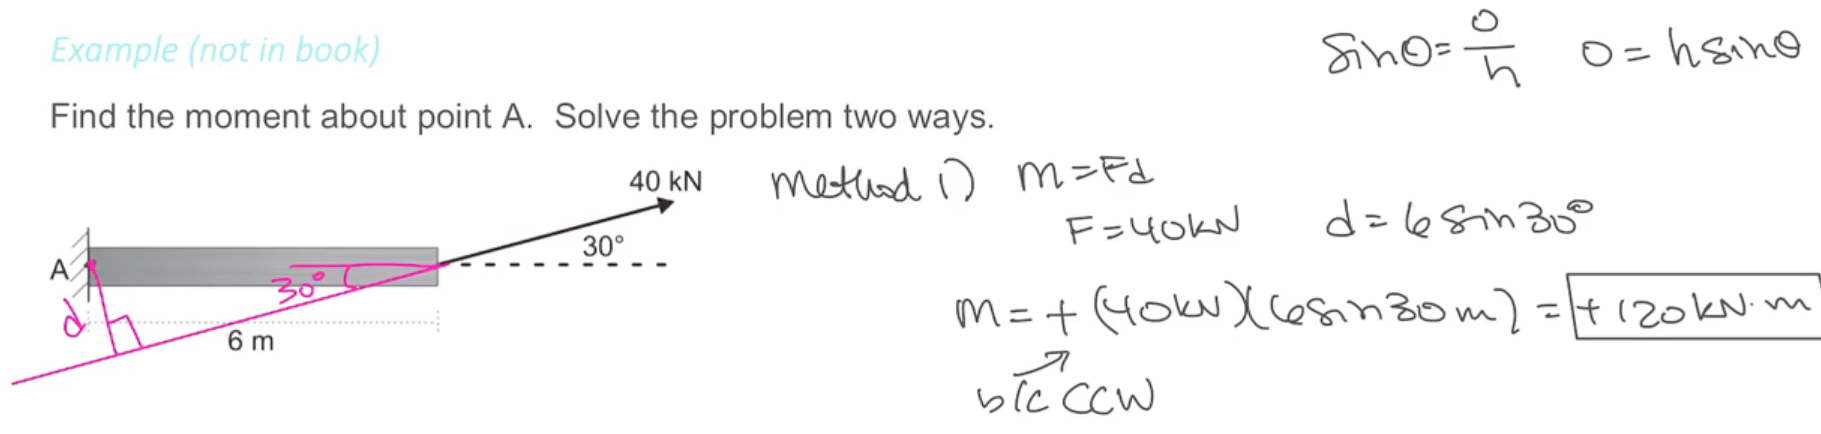 Example (not in book)
sinθ = o/h   o = h sinθ
Find the moment about point A.  Solve the problem two ways.
Method 1) M = Fd
40 kN
F = 40kN   d = 6 sin 30°
30°
A
30°
d
6 m
M = + (40kN)(6sin30m) = +120kN·m
b/c CCW